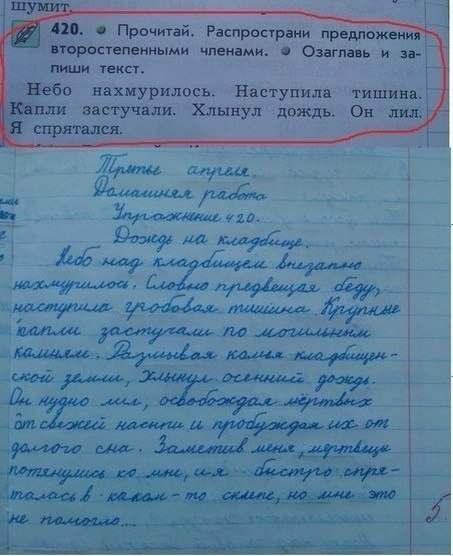 шумит.
420. • Прочитай. Распространи предложения
второстепенными членами. • Озаглавь и за-
пиши текст.
Небо нахмурилось. Наступила тишина.
Капли застучали. Хлынул дождь. Он лил.
Я спрятался.
Третье апреля.
Домашняя работа
Упражнение 420.
Дождь на кладбище.
Небо над кладбищем внезапно
нахмурилось. Словно предвещая беду,
наступила гробовая тишина. Крупные
капли застучали по могильным
камням. Размывая комья кладбищен-
ской земли, хлынул осенний дождь.
Он нудно лил, освобождая мёртвых
от свежей насыпи и пробуждая их от
долгого сна. Заметив меня, мертвецы
потянулись ко мне, и я быстро спря-
талась в каком-то склепе, но мне это
не помогло...
5